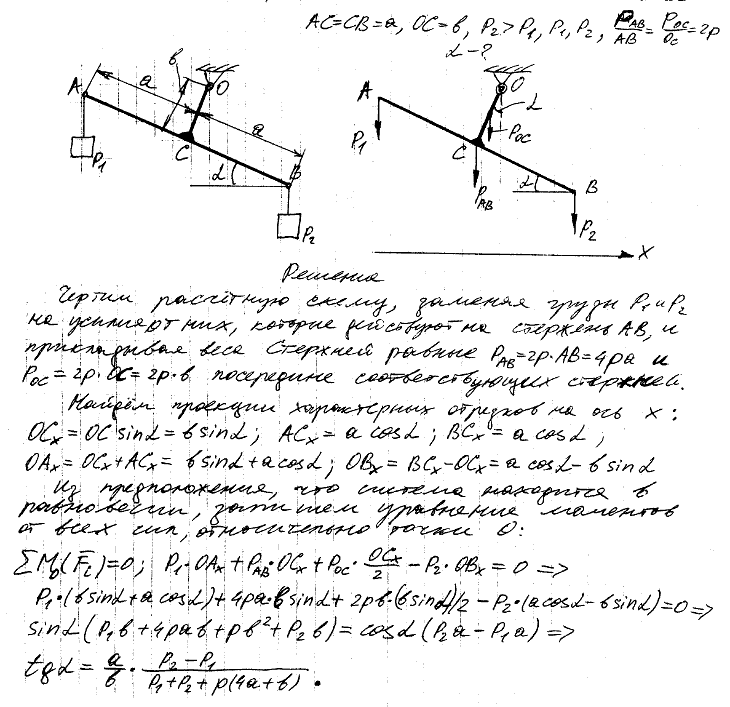 AC=CB=a, OC=b, P₂>P₁, P₁, P₂, P_AB/AB = P_OC/OC = 2p
α-?
A a b O
C a
P₁ α B
P₂
A O α
P₁ C P_OC
P_AB α B
P₂
X
Решение
Чертим расчётную схему, заменяя грузы P₁ и P₂
на усилия от них, которые действуют на стержень AB, и
прикладывая веса стержней равные P_AB=2p·AB=4pa и
P_OC=2p·OC=2p·b посередине соответствующих стержней.
Найдём проекции характерных отрезков на ось x:
OCₓ=OC sinα=b sinα; ACₓ=a cosα; BCₓ=a cosα;
OAₓ=OCₓ+ACₓ=b sinα+a cosα; OBₓ=BCₓ-OCₓ=a cosα-b sinα
Из предположения, что система находится в
равновесии, запишем уравнение моментов
от всех сил, относительно точки O:
∑M₀(F̄ᵢ)=0; P₁·OAₓ+P_AB·OCₓ+P_OC·OCₓ/2-P₂·OBₓ=0 =>
P₁·(b sinα+a cosα)+4pa·b sinα+2pb·(b sinα)/2-P₂·(a cosα-b sinα)=0 =>
sinα(P₁b+4pab+pb²+P₂b)=cosα(P₂a-P₁a) =>
tgα = a/b · (P₂-P₁)/(P₁+P₂+p(4a+b)).